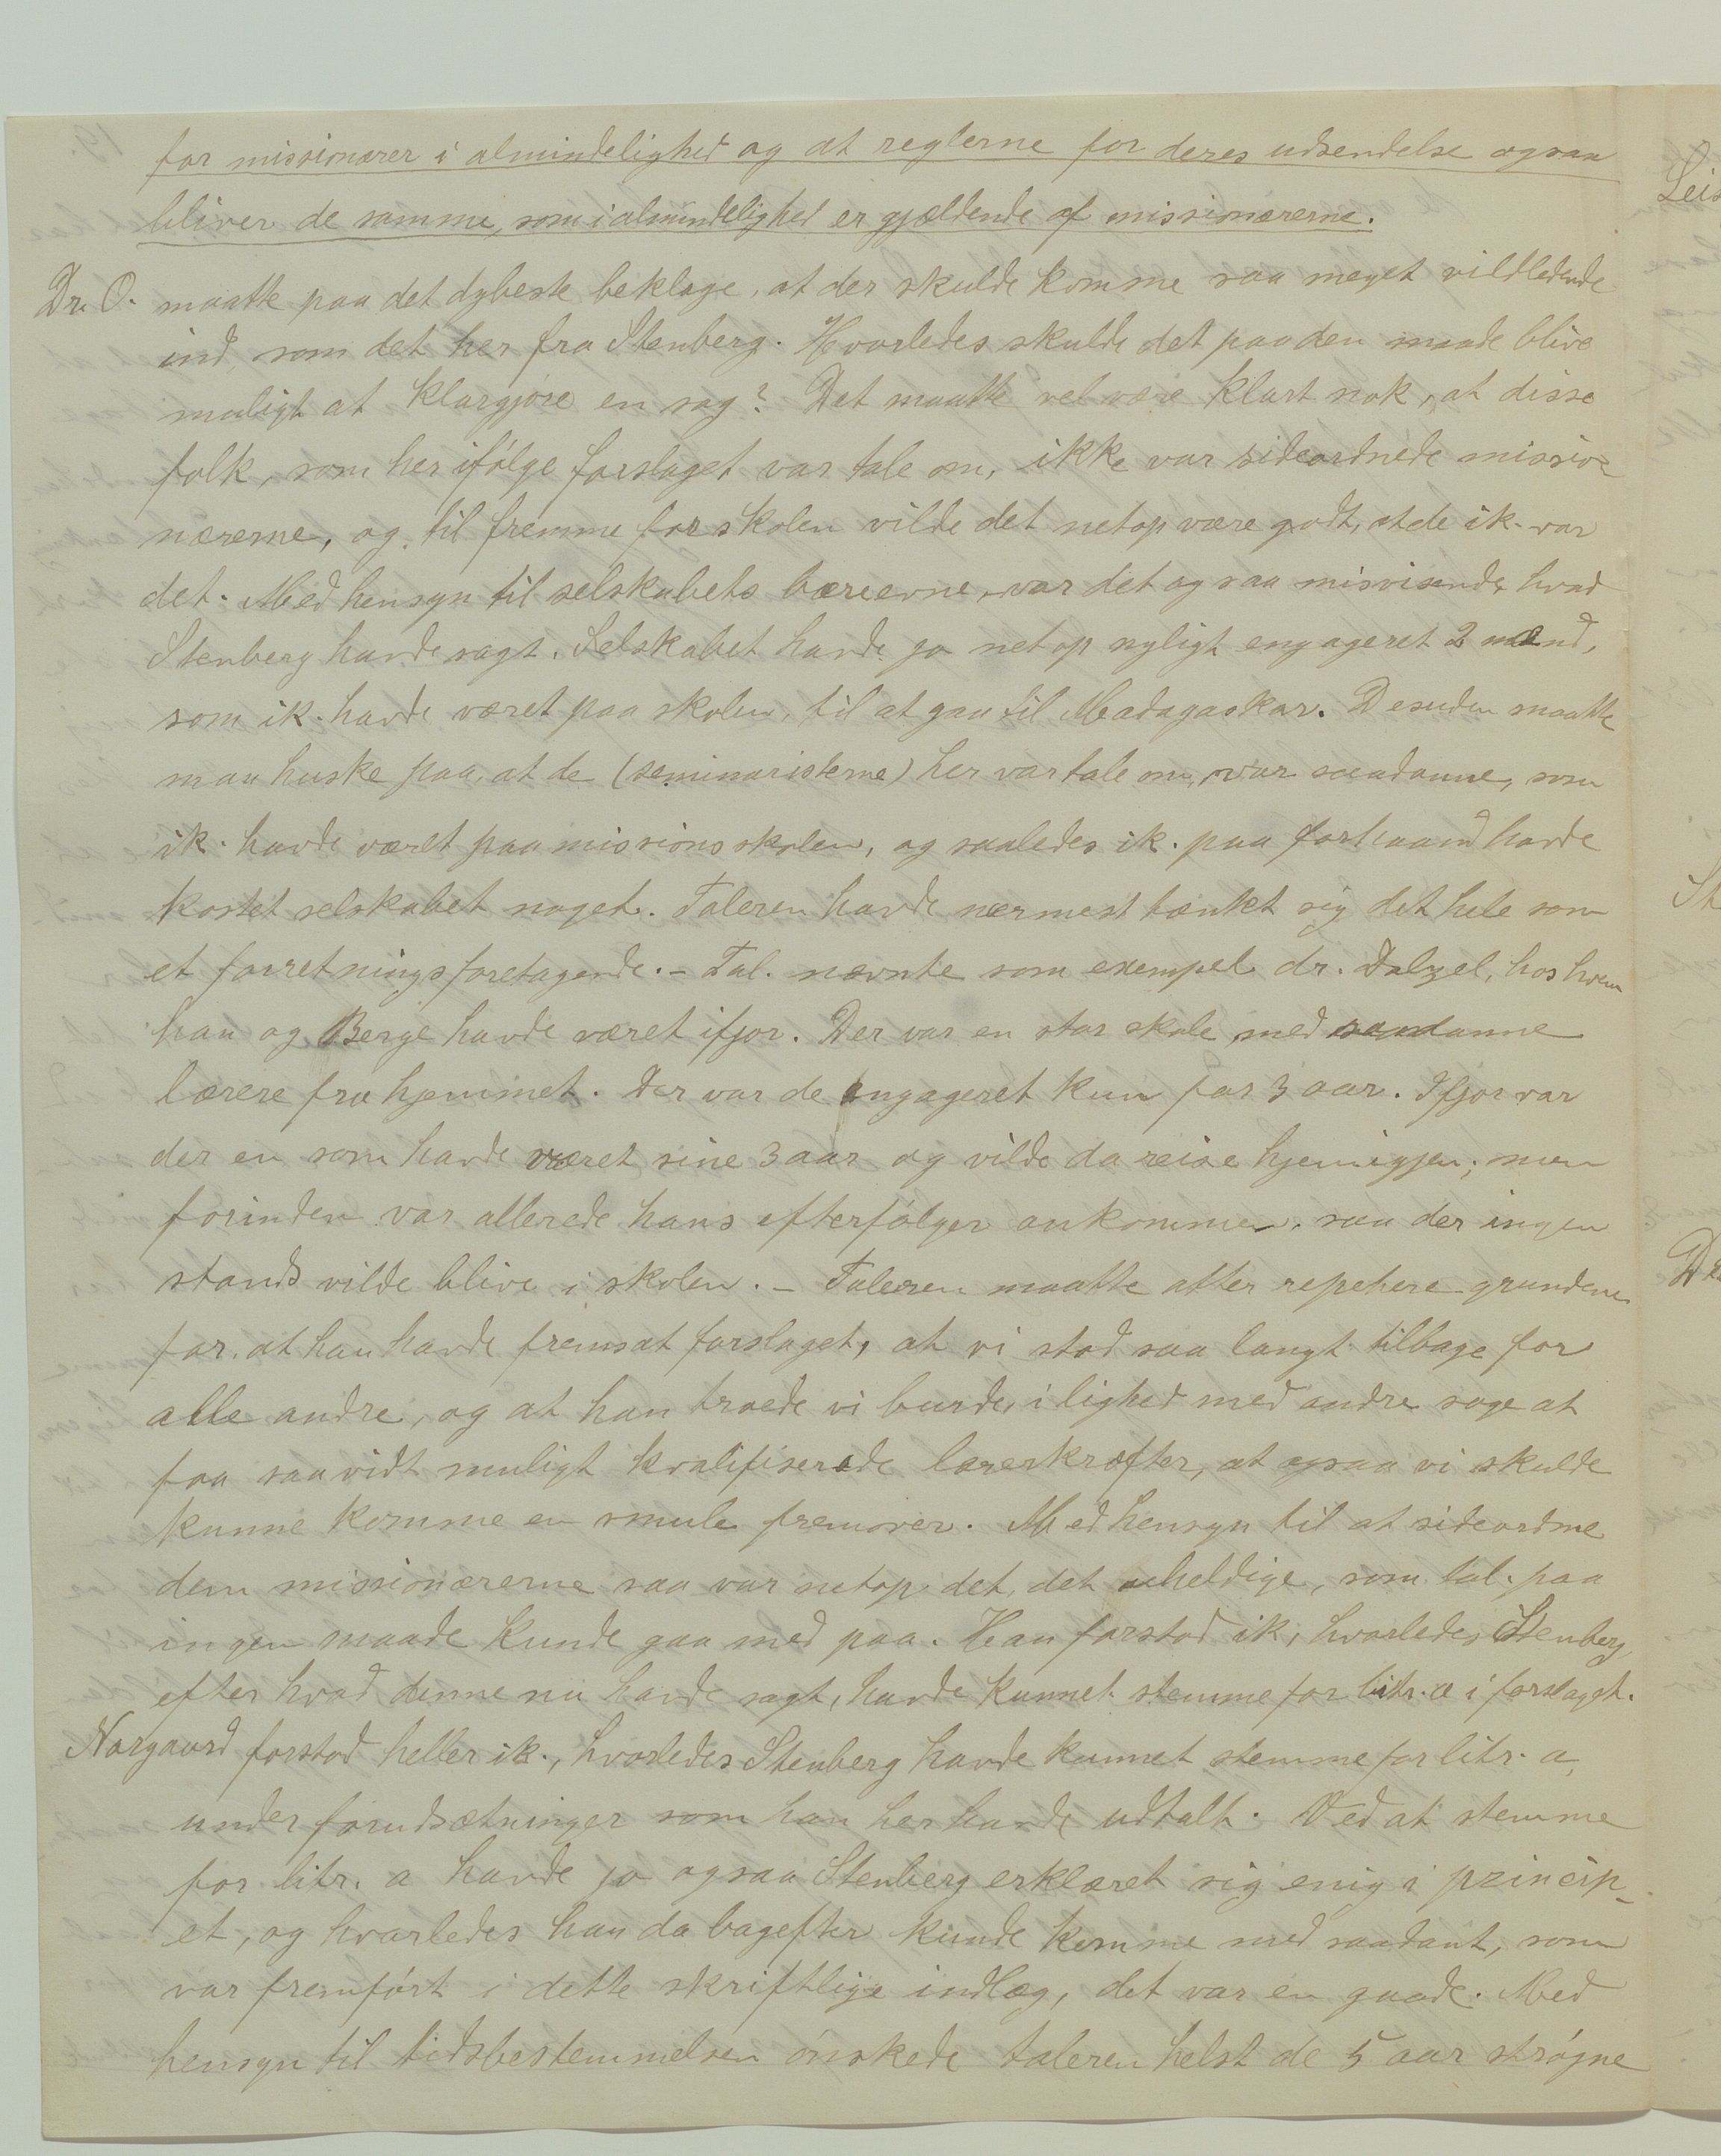 for missionærer i almindelighed og at reglerne for deres udsendelse ogsaa
bliver de samme, som i almindelighed er gjældende af missionærerne.
Dr. O. maatte paa det dybeste beklage, at der skulde komme saa meget vildledende
ind, som det her fra Stenberg. Hvorledes skulde det paa den maade blive
muligt at klargjøre en sag? Det maatte vel være klart nok, at disse
folk, som her ifølge forslaget var tale om, ikke var sideordnede missio
nærerne, og til fremme for skolen vilde det netop være godt, at de ik. var
det. Med hensyn til selskabets bæreevne, var det ogsaa misvisende, hvad
Stenberg havde sagt. Selskabet havde jo netop nyligt engageret 2 mænd,
som ik. havde været paa skolen, til at gaa til Madagaskar. Desuden maatte
man huske paa, at de (seminaristerne) her var tale om, var saadanne, som
ik. havde været paa missionsskolen, og saaledes ik. paa forhaand havde
kostet selskabet noget. Taleren havde nærmest tænkt sig det hele som
et forretningsforetagende. – Tal. nævnte som exempel dr. Dalzel, hos hvem
han og Berge havde været ifjor. Der var en stor skole med saadanne
lærere fra hjemmet. Der var de engageret kun for 3 aar. Ifjor var
der en som havde været sine 3 aar og vilde da reise hjem igjen; men
forinden var allerede hans efterfølger ankommen, saa der ingen
stands vilde blive i skolen. – Taleren maatte atter repetere grundene
for, at han havde fremsat forslaget, at vi stod saa langt tilbage for
alle andre, og at han troede vi burde, i lighed med andre søge at
faa saavidt muligt kvalifiserede lærerkræfter, at ogsaa vi skulde
kunne komme en smule fremover. Med hensyn til at sideordne
dem missionærerne saa var netop det, det uheldige, som tal. paa
ingen maade kunde gaa med paa. Han forstod ik, hvorledes Stenberg,
efter hvad denne nu havde sagt, havde kunnet stemme for litr. a i forslaget.
Norgaard forstod heller ik., hvorledes Stenberg havde kunnet stemme for litr. a,
under forudsætninger som han her havde udtalt. Ved at stemme
for litr. a havde jo ogsaa Stenberg erklæret sig enig i princip-
et, og hvorledes han da bagefter kunde komme med saadant, som
var fremført i dette skriftlige indlæg, det var en gaade. Med
hensyn til tidsbestemmelsen ønskede taleren helst de 5 aar strøgne